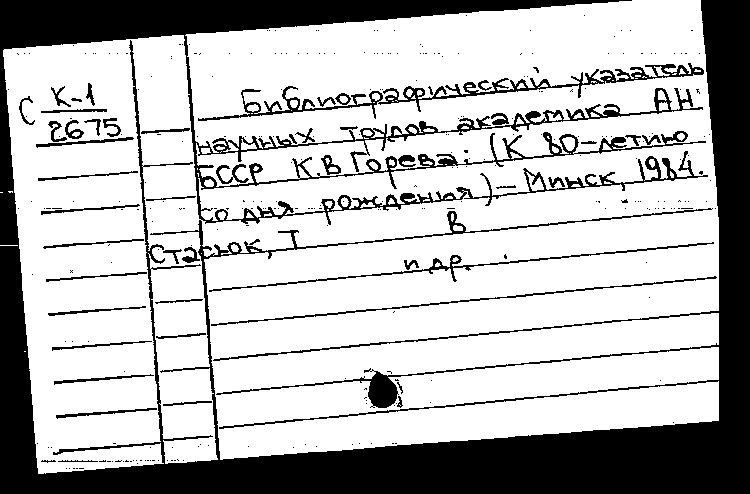 С К-1
2675
Библиографический указатель
научных трудов академика АН
БССР К.В Горева: (К 80-летию
со дня рождения).- Минск, 1984.
В
Стасюк, Т
и др.